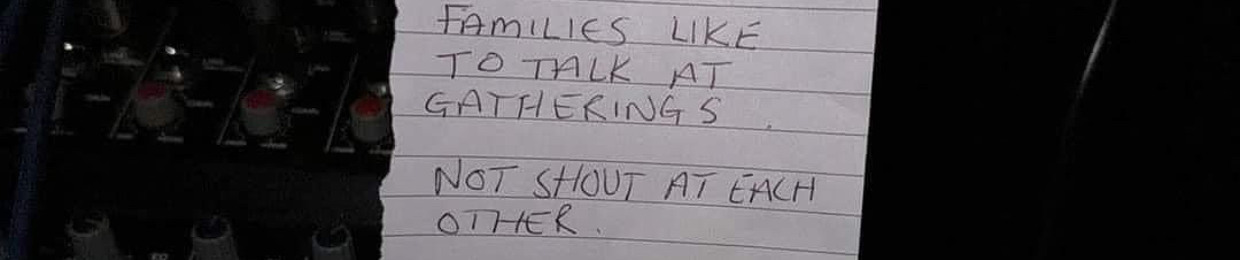 FAMILIES LIKE
TO TALK AT
GATHERINGS .
NOT SHOUT AT EACH
OTHER.